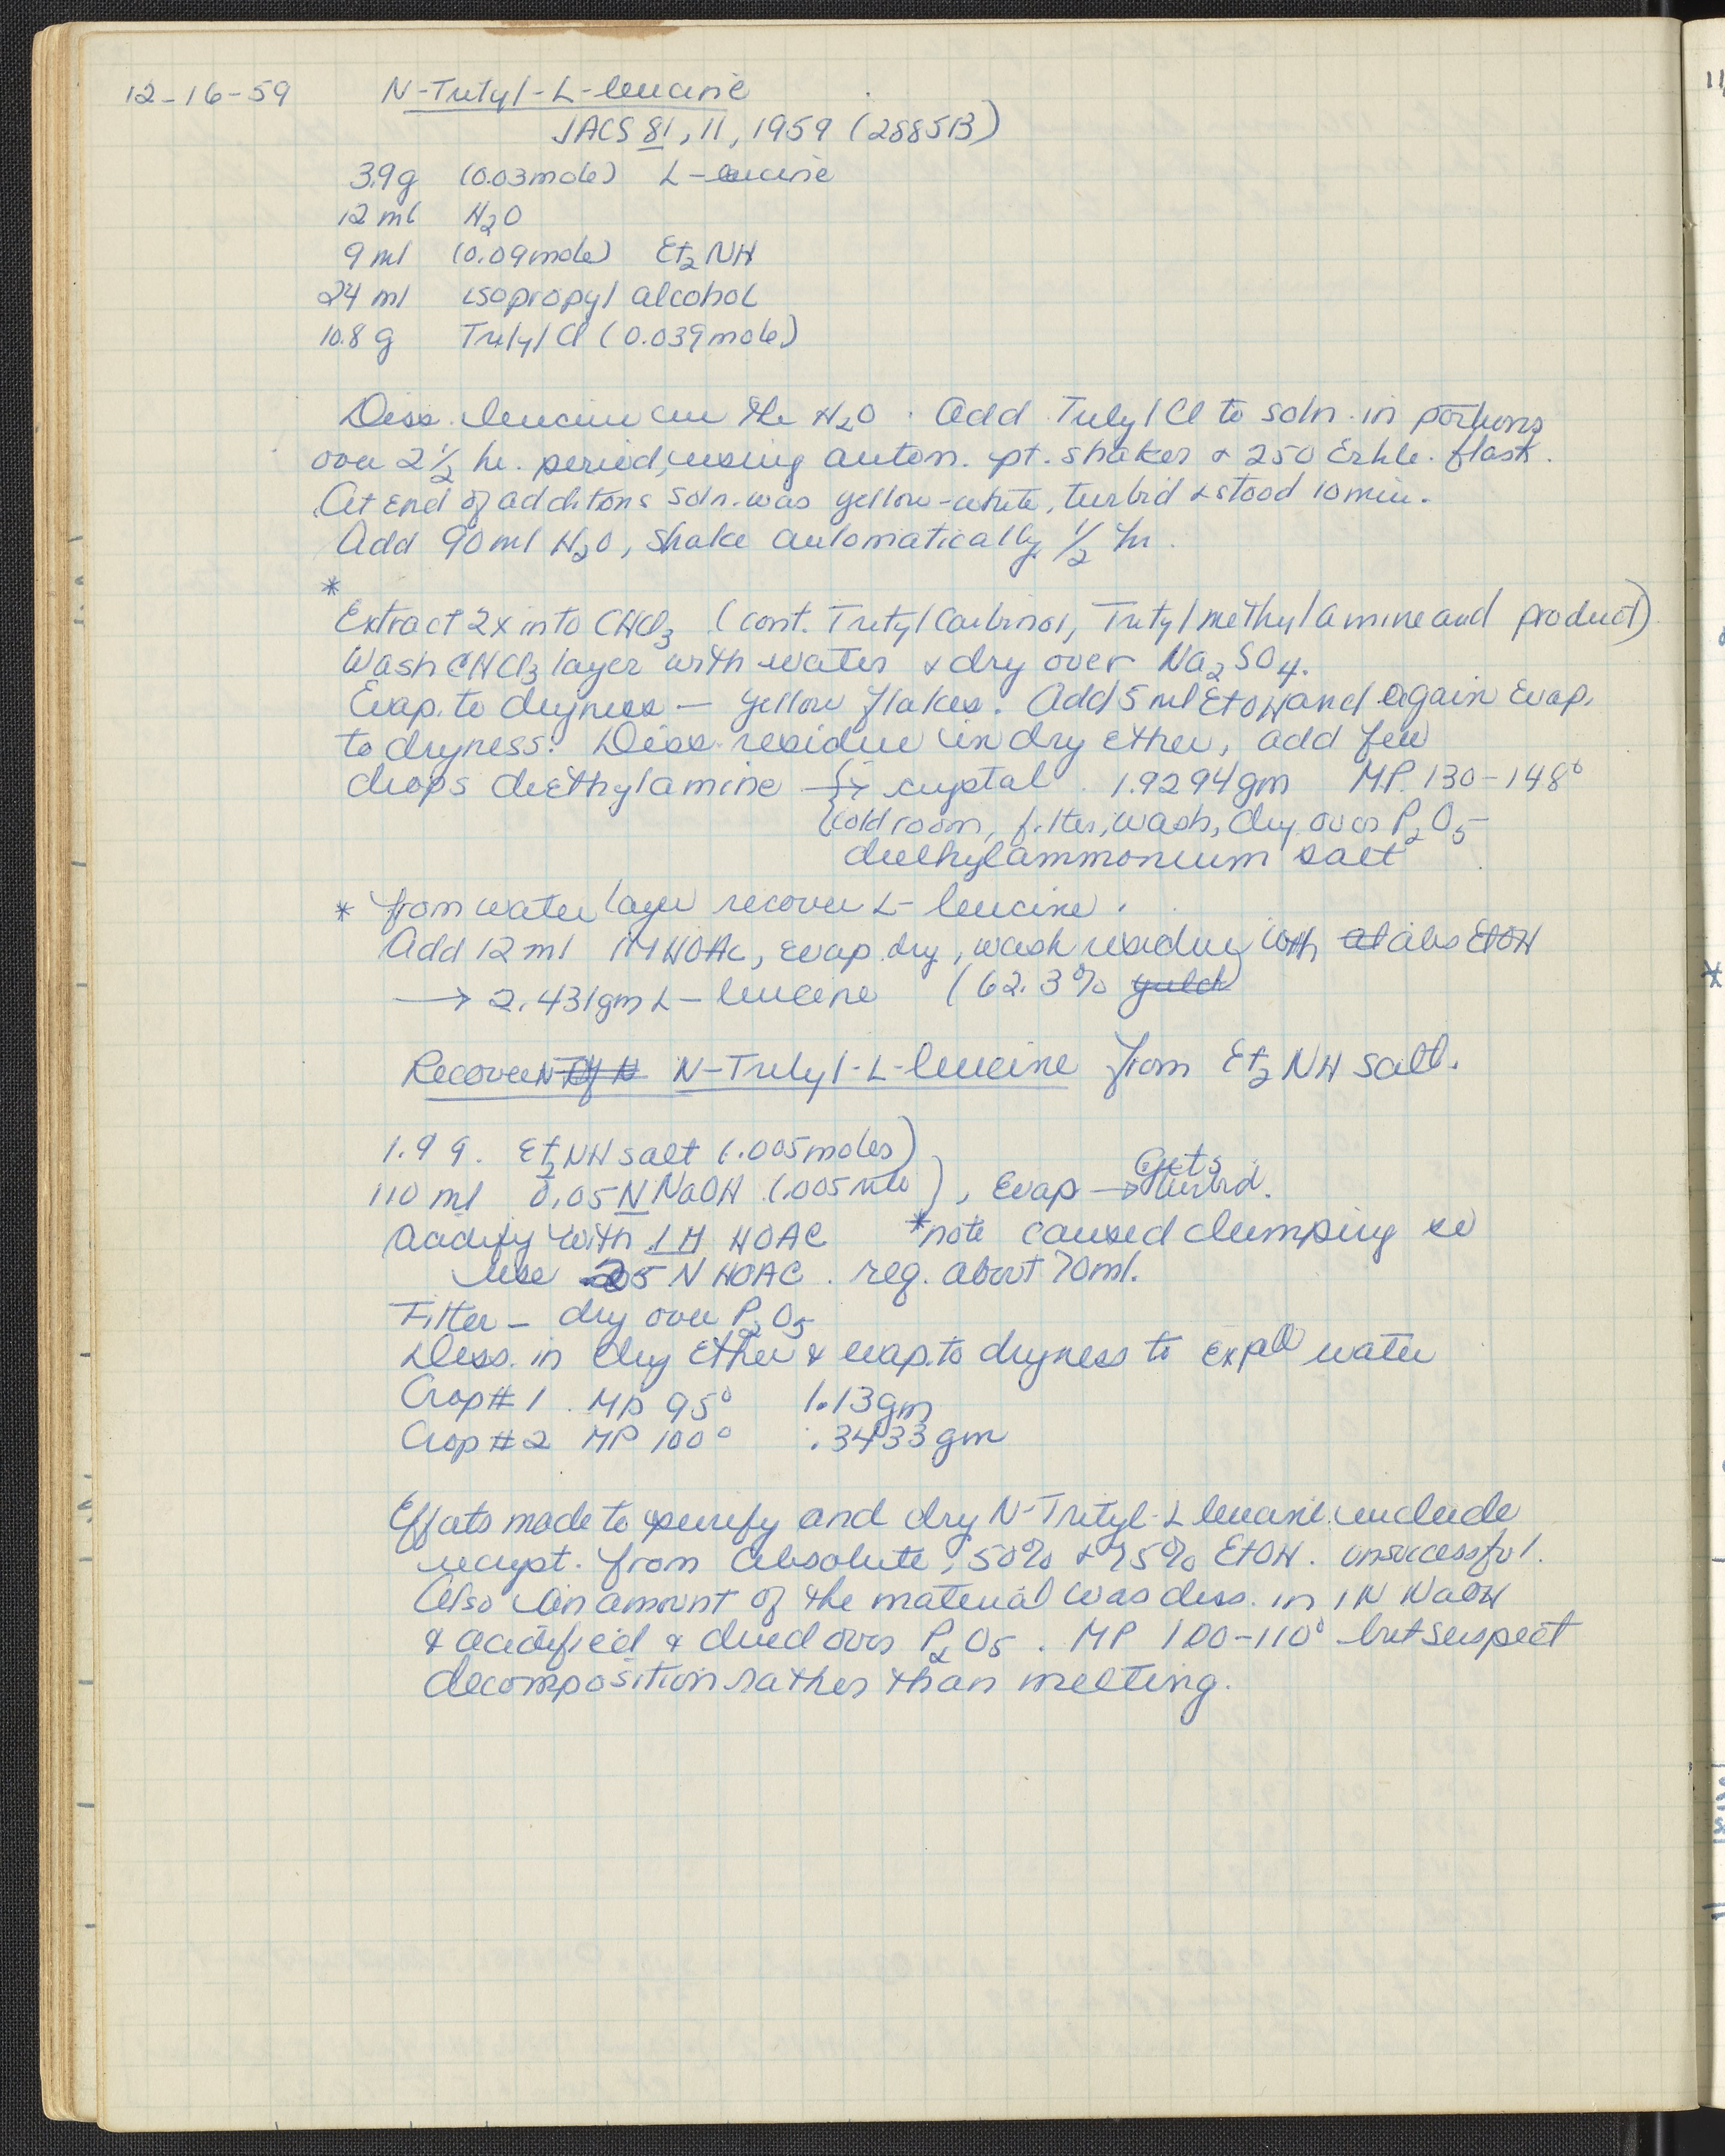 12-16-59 N-Trityl-L-leucine
JACS 81, 11, 1959 (2885B)
3.9g (0.03mole) L-leucine
12 ml H2O
9 ml (0.09mole) Et2NH
24 ml isopropyl alcohol
10.8 g Trityl Cl (0.039mole)
Diss. leucine in the H2O. Add Trityl Cl to soln. in portions
over 2 1/2 hr. period, using autom. pt. shaker & 250 Erhle. flask.
At end of additions soln. was yellow-white, turbid & stood 10 min.
Add 90 ml H2O, shake automatically 1/2 hr.
*
Extract 2x into CHCl3 (cont. Trityl Carbinol, Trityl methylamine and product)
Wash CHCl3 layer with water & dry over Na2SO4.
Evap. to dryness — yellow flakes. Add 5 ml EtOH and again evap.
to dryness. Diss. residue in dry ether, add few
drops diethylamine → crystal. 1.9294gm MP. 130-148°
cold room, filter, wash, dry over P2O5-
diethylammonium salt
* from water layer recover L-leucine.
Add 12 ml 1M HOAc, evap. dry, wash residue with at abs EtOH
→ 2.431gm L-leucine (62.3% yield)
Recover N-Trityl-L-leucine from Et2NH salt.
1.9 g. Et2NH salt (.005moles)
110 ml 0.05 N NaOH (.005 mole), Evap → Gets turbid.
Acidify with 1M HOAC *note caused clumping so
use .05 N HOAC. req. about 70ml.
Filter - dry over P2O5
Diss. in dry ether & evap. to dryness to expell water
Crop #1. MP 95° 1.13gm
Crop #2 MP 100° .3433gm
Efforts made to purify and dry N-Trityl-L leucine include
recryst. from absolute, 50% & 75% EtOH. unsuccessful.
Also an amount of the material was diss. in 1N NaOH
& acidified & dried over P2O5. MP 100-110° but suspect
decomposition rather than melting.